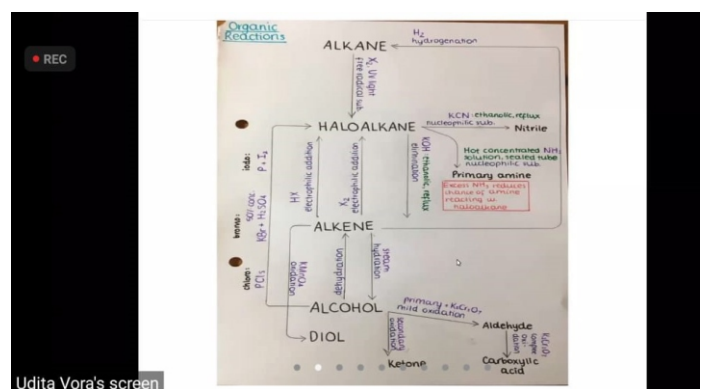 REC
Organic
Reactions
ALKANE
H₂
hydrogenation
X₂, UV light
free radical sub.
HALOALKANE
KCN - ethanolic, reflux
nucleophilic sub.
Nitrile
Hot concentrated NH₃
solution, sealed tube
nucleophilic sub.
Primary amine
Excess NH₃ reduces
chance of amine
reacting w.
haloalkane
KOH ethanolic, reflux
elimination
HX
electrophilic addition
X₂
electrophilic addition
iodo:
P + I₂
bromo:
50% conc.
KBr + H₂SO₄
chloro:
PCl₅
ALKENE
KMnO₄
oxidation
dehydration
steam
hydration
ALCOHOL
DIOL
primary + K₂Cr₂O₇
mild oxidation
Aldehyde
secondary
oxidation
Ketone
K₂Cr₂O₇
Carboxylic
acid
Udita Vora's screen